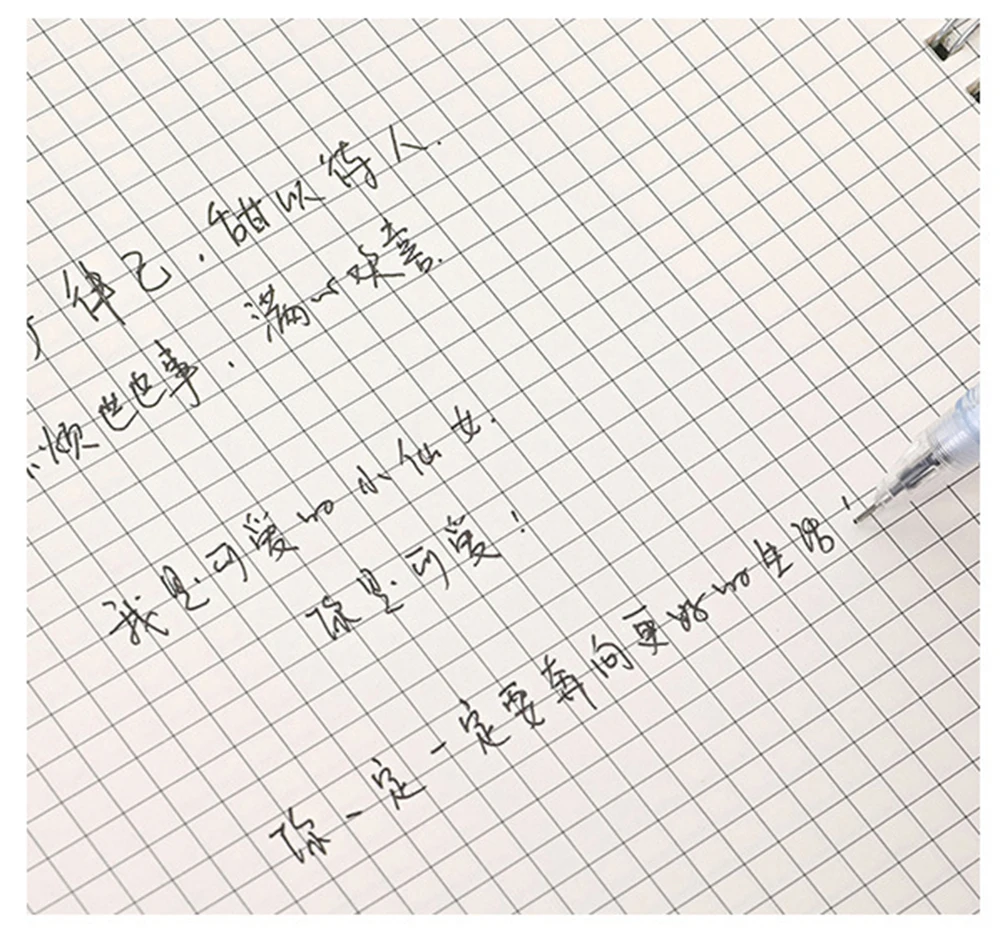 伴己.甜以待人.
烦世世事.满心欢喜.
我是可爱的小仙女.
你是可爱!
你一定一定要奔向更好的生活!